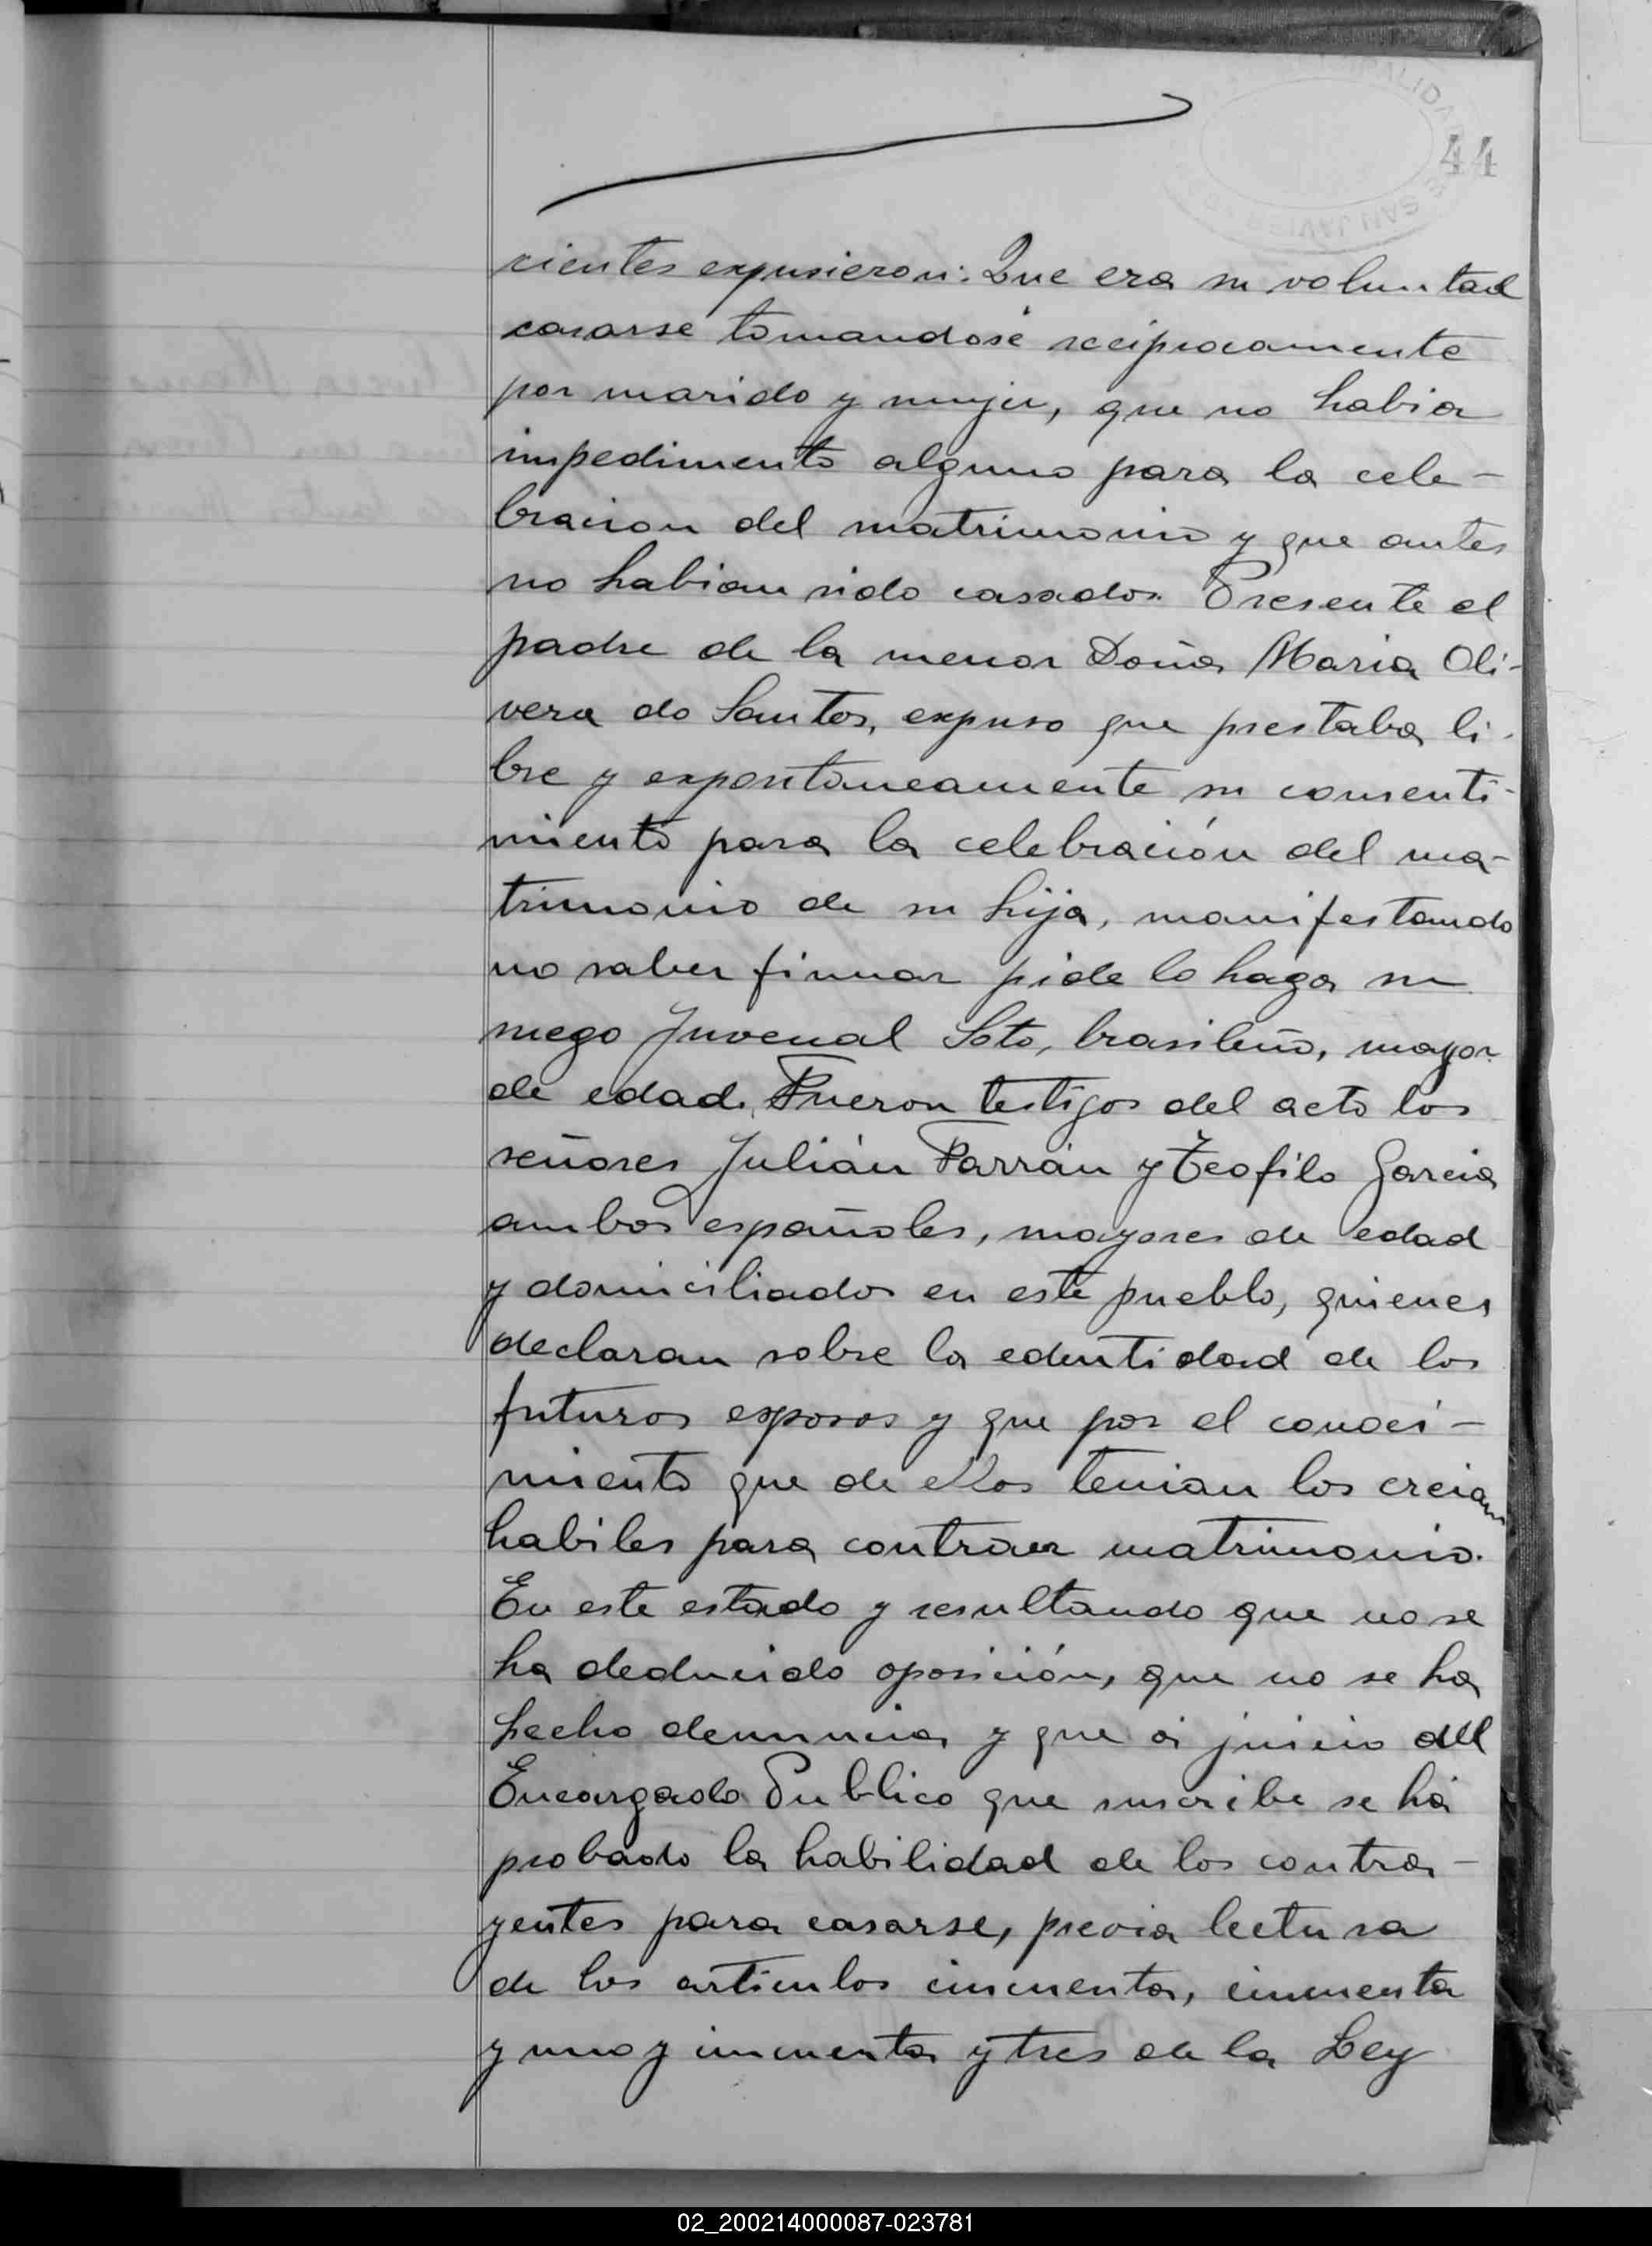 44
cientes expusieron: Que era su voluntad
casarse tomandose reciprocamente
por marido y mujer, que no habia
impedimento alguno para la cele-
bracion del matrimonio y que antes
no habian sido casados. Presente el
padre de la menor Doña Maria Oli-
vera do Santos, expuso que prestaba li-
bre y expontaneamente su consenti-
miento para la celebración del ma-
trimonio de su hija, manifestando
no saber firmar pide lo haga su
ruego Juvenal Soto, brasileño, mayor
de edad. Fueron testigos del acto los
señores Julián Farrán y Teofilo Garcia
ambos españoles, mayores de edad
y domiciliados en este pueblo, quienes
declaran sobre la edentidad de los
futuros esposos y que por el conoci-
miento que de ellos tenian los creian
habiles para contraer matrimonio.
En este estado y resultando que no se
ha deducido oposición, que no se ha
hecho denuncia y que á juicio del
Encargado Publico que suscribe se há
probado la habilidad de los contra-
yentes para casarse, previa lectura
de los articulos cincuenta, cincuenta
y uno y cincuenta y tres de la Ley
SAN JAVIER
02_200214000087-023781